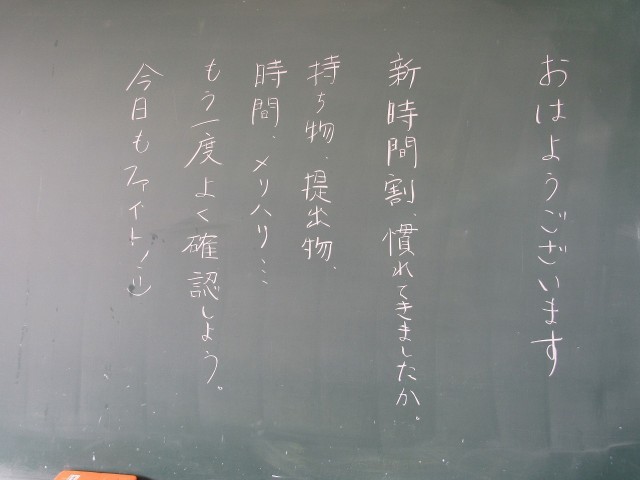 おはようございます
新時間割、慣れてきましたか。
持ち物、提出物、
時間、メリハリ…
もう一度よく確認しよう。
今日もファイト！